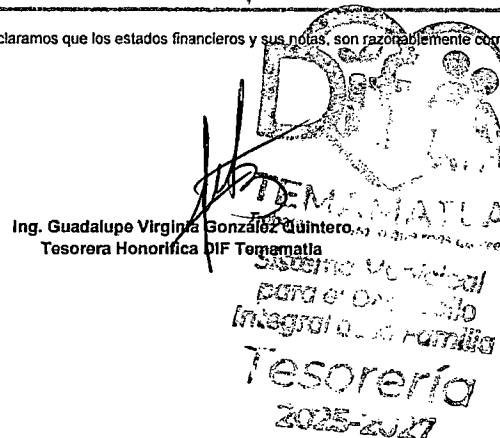 claramos que los estados financieros y sus notas, son razonablemente com
DIF
TEMAMATLA
Ing. Guadalupe Virginia González Quintero
Tesorera Honorifica DIF Temamatla
Sistema Municipal
para el
Integral Familia
Tesorería
2025-2027